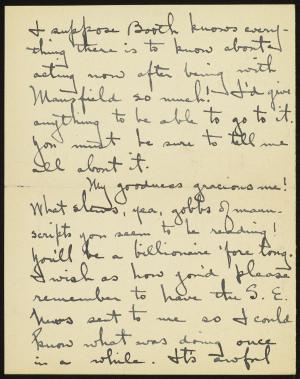 I suppose Booth knows every-
thing there is to know about
acting now after being with
Mansfield so much! I'd give
anything to be able to go to it.
You must be sure to tell me
all about it.
My goodness gracious me!
What, yea, gobbs of man-
scripts you seem to be reading!
You'll be a billionaire 'fore long.
I wish as how you'd please
remember to have the S. E.
News sent to me so I could
know what was doing once
in a while. It's awful